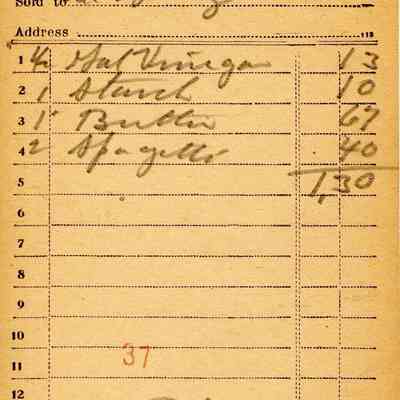 Sold to
Address
1 1/2 Gal Vinegar 13
2 1 Starch 10
3 1 Butter 67
4 2 Spagetti 40
5 1,30
6
7
8
9
10
37
11
12